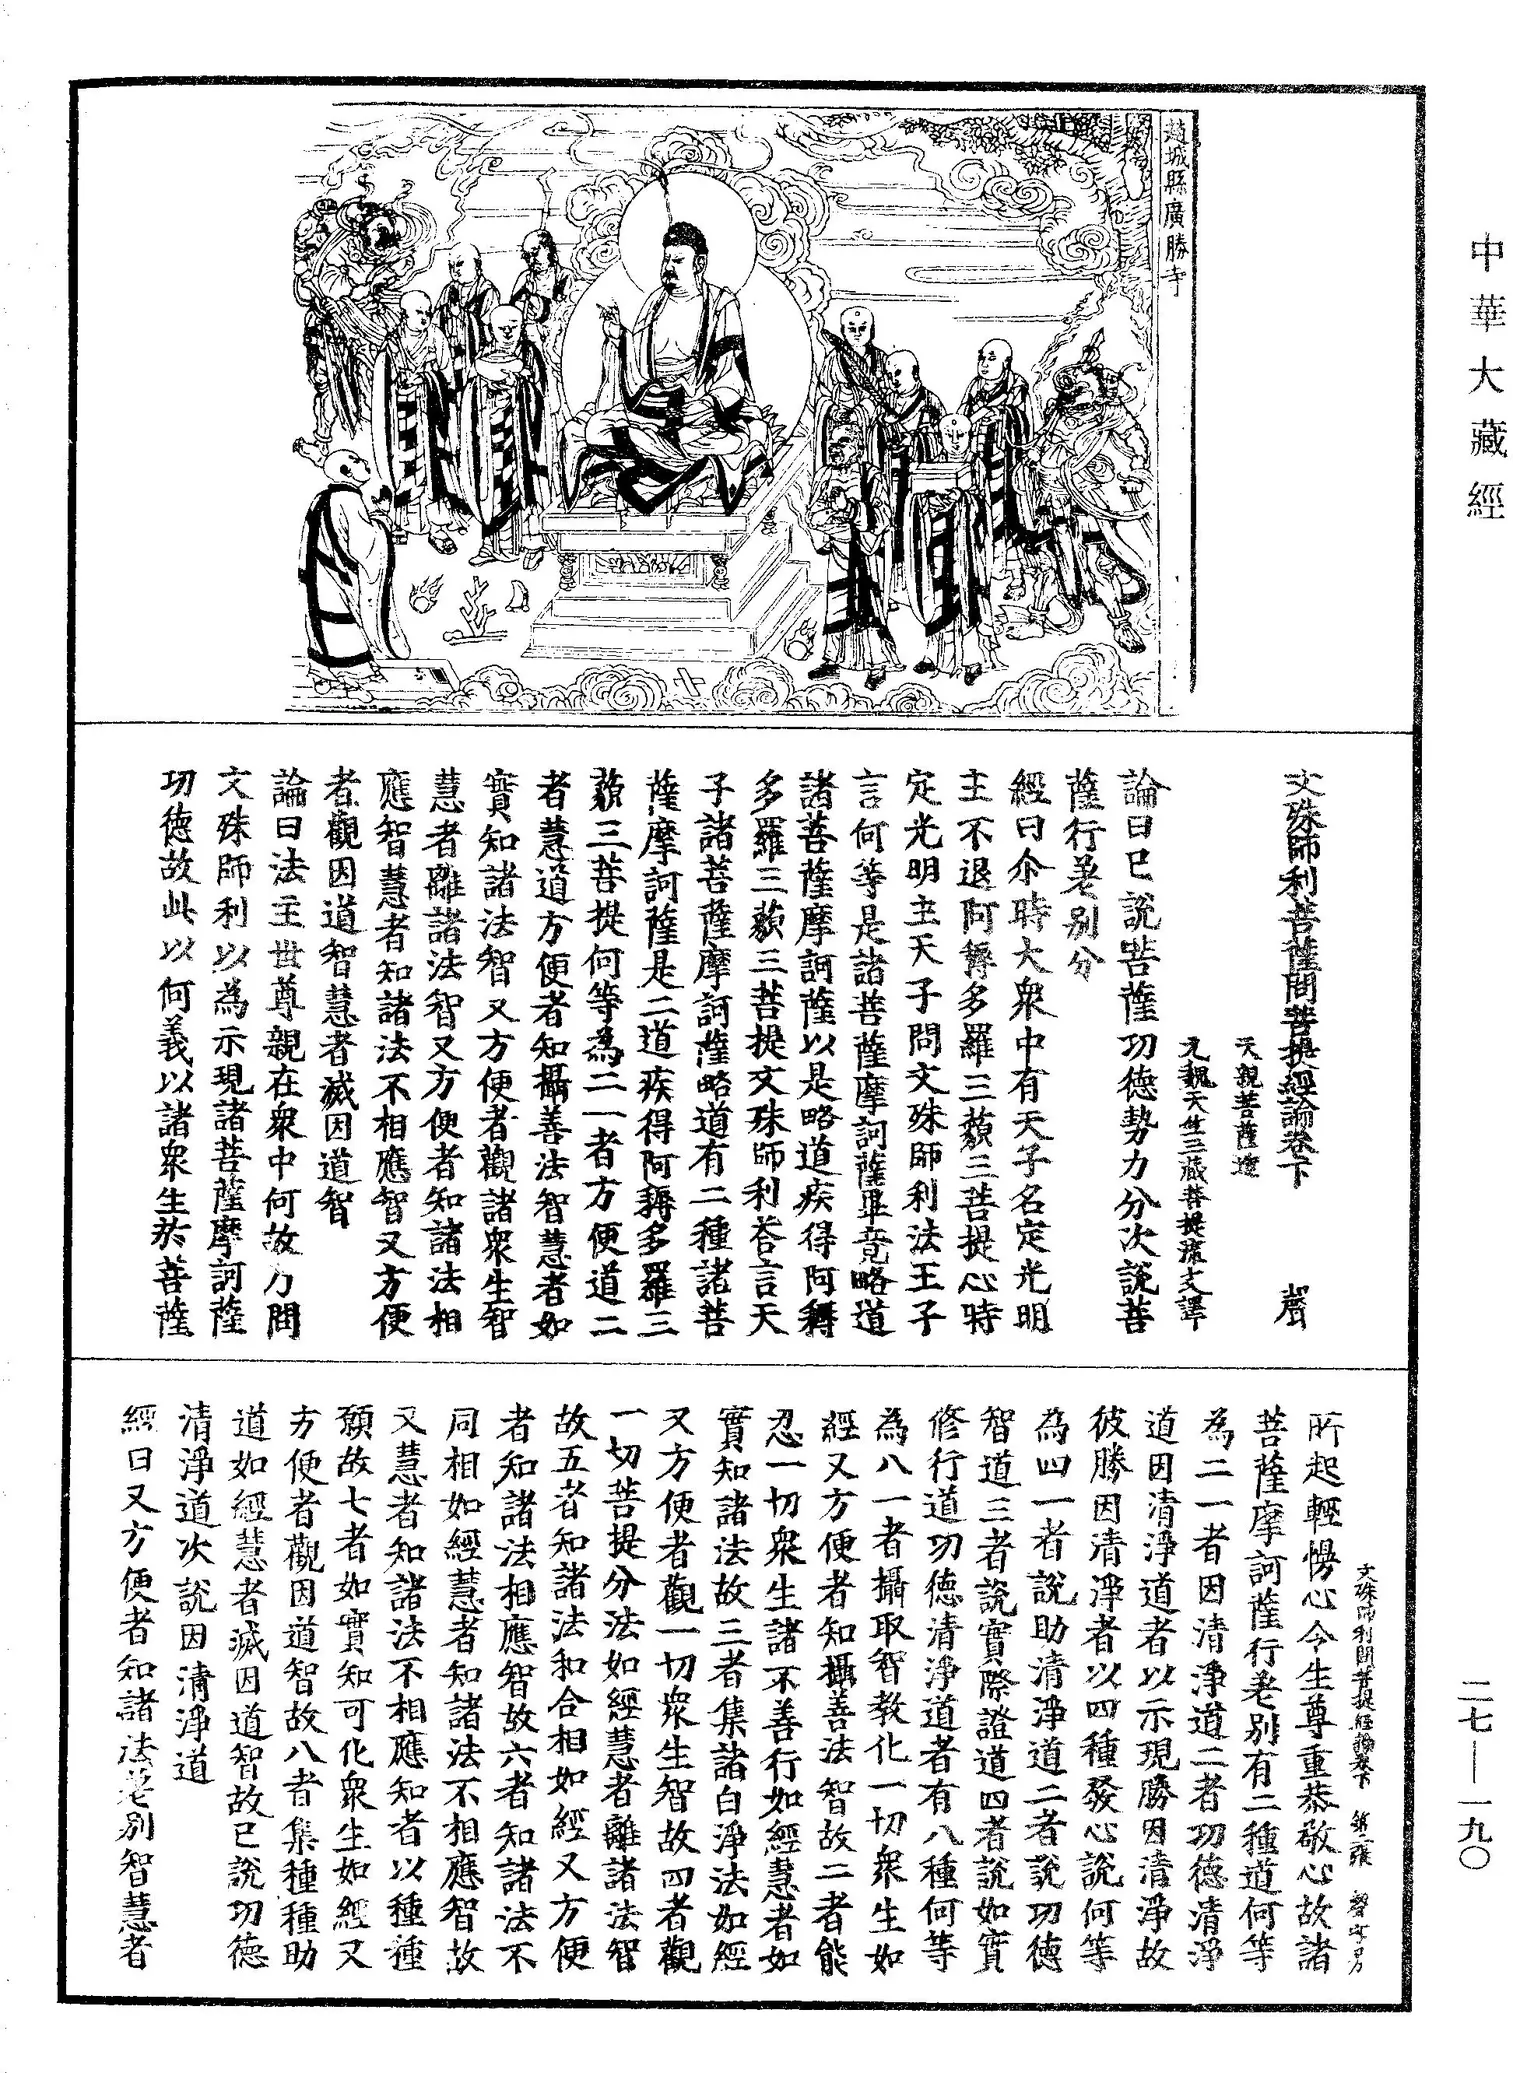 中華大藏經
趙城縣廣勝寺
文殊師利菩薩問菩提經論卷下　聲
天親菩薩造
元魏天竺三藏菩提流支譯
論曰已說菩薩功德勢力分次說菩
薩行差別分
經曰尒時大衆中有天子名定光明
主不退阿耨多羅三藐三菩提心時
定光明主天子問文殊師利法王子
言何等是諸菩薩摩訶薩畢竟略道
諸菩薩摩訶薩以是略道疾得阿耨
多羅三藐三菩提文殊師利荅言天
子諸菩薩摩訶薩略道有二種諸菩
薩摩訶薩是二道疾得阿耨多羅三
藐三菩提何等為二一者方便道二
者慧道方便者知攝善法智慧者如
實知諸法智又方便者觀諸衆生智
慧者離諸法智又方便者知諸法相
應智慧者知諸法不相應智又方便
者觀因道智慧者滅因道智
論曰法主世尊親在衆中何故乃問
文殊師利以為示現諸菩薩摩訶薩
功德故此以何義以諸衆生於菩薩
所起輕慢心今生尊重恭敬心故諸
菩薩摩訶薩行差別有二種道何等
為二一者因清淨道二者功德清淨
道因清淨道者以示現勝因清淨故
彼勝因清淨者以四種發心說何等
為四一者說助清淨道二者說功德
智道三者說實際證道四者說如實
修行道功德清淨道者有八種何等
為八一者攝取智教化一切衆生如
經又方便者知攝善法智故二者能
忍一切衆生諸不善行如經慧者如
實知諸法故三者集諸白淨法如經
又方便者觀一切衆生智故四者觀
一切菩提分法如經慧者離諸法智
故五者知諸法和合相如經又方便
者知諸法相應智故六者知諸法不
同相如經慧者知諸法不相應智故
又慧者知諸法不相應知者以種種
願故七者如實知可化衆生如經又
方便者觀因道智故八者集種種助
道如經慧者滅因道智故已說功德
清淨道次說因清淨道
經曰又方便者知諸法差別智慧者
文殊師利問菩提經論卷下　第二張　聲字号
二七—一九〇